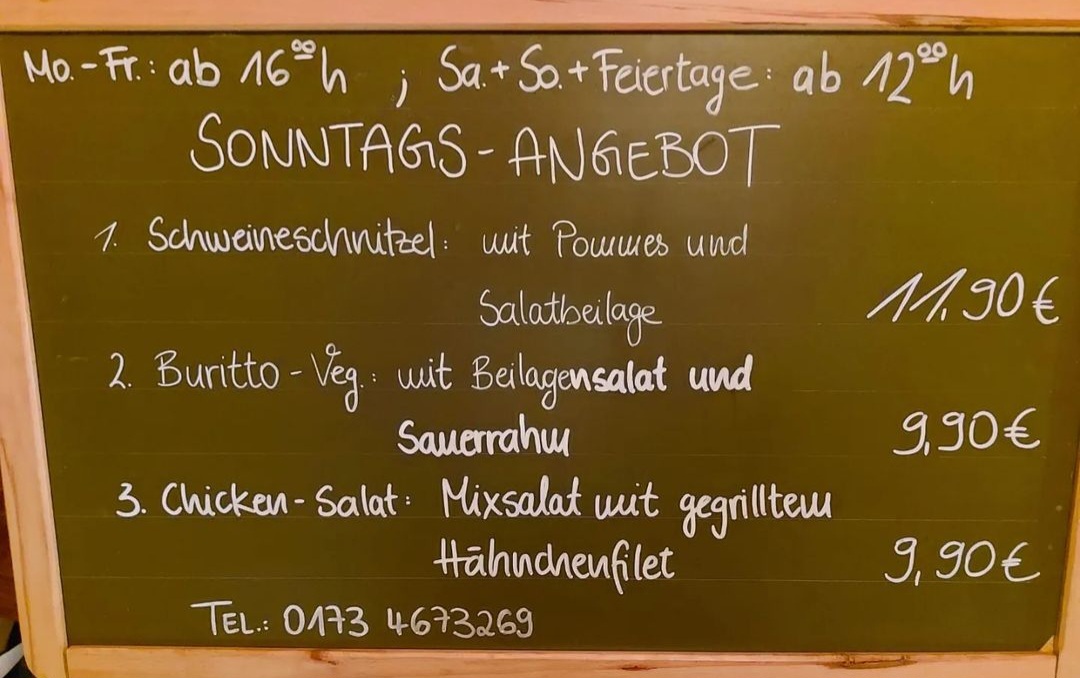 Mo.-Fr.: ab 16⁰⁰h ; Sa.+So.+Feiertage: ab 12⁰⁰h
SONNTAGS-ANGEBOT
1. Schweineschnitzel: mit Pommes und
Salatbeilage 11,90€
2. Buritto-Veg.: mit Beilagensalat und
Sauerrahm 9,90€
3. Chicken-Salat: Mixsalat mit gegrilltem
Hähnchenfilet 9,90€
TEL.: 0173 4673269